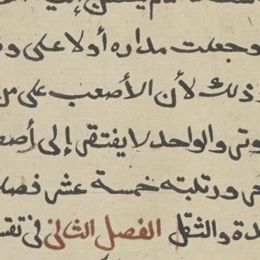 وجعلت مداره أولا على
وذلك لأن الأصعب على من
وتى والواحد لا يفتقر إلى أصعـ
ورتبته خمسة عشر فصلا
دة والثقل الفصل الثانى فى تقسـ